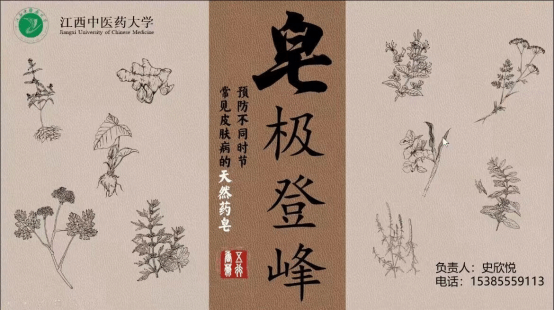 江西中医药大学
Jiangxi University of Chinese Medicine
皂极登峰
预防不同时节
常见皮肤病的天然药皂
负责人：史欣悦
电话：15385559113